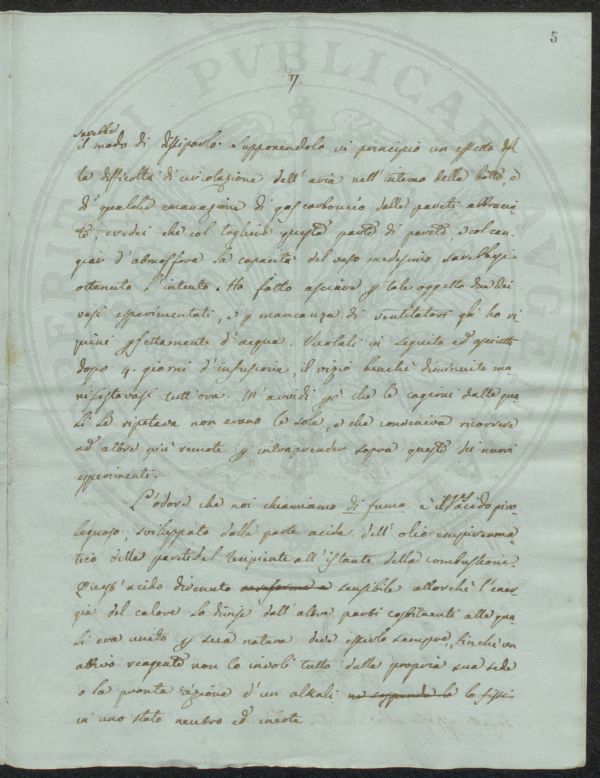 5
7.
sarebbe
il modo di dissiparlo. Supponendolo in principio un effetto del
la difficoltà di circolazione dell'aria nell'interno della botte, o
di qualche emanazione di gas carbonico dalle pareti abbrucia
te, credei che col togliere queste parte di parete, e col can
giar d'atmosfera la capacità del vaso medesimo sarebbesi
ottenuto l'intento. Ho fatto asciare p tale oggetto due dei
vasi esperimentati, e p mancanza di ventilatori gli ho ri
pieni pfettamente d'acqua. Vuotati in seguito ed asciutti
dopo 4. giorni d'infusione il vizio benchè diminuito ma
nifestavasi tutt'ora. M'avvidi pò che le cagioni dalle qua
li Lo ripeteva non erano le sole, e che conveniva ricorrere
ad altre più remote p intraprender sopra queste dei nuovi
esperimenti.
L'odore che noi chiamiamo di fumo è l'acido piro
legnoso sviluppato dalla parte acida dell'olio empireuma
tico delle pareti del recipiente all'istante della combustione.
Quest'acido divenuto sensibile allorchè l'ener
gia del calore lo divise dall'altre parti costituenti alle qua
li era unito p sua natura deve esserlo sempre, finchè un
attivo reagente non lo involi tutto dalla propria sua sede
o la pronta azione d'un alkali lo fissi
in uno stato neutro ed inerte